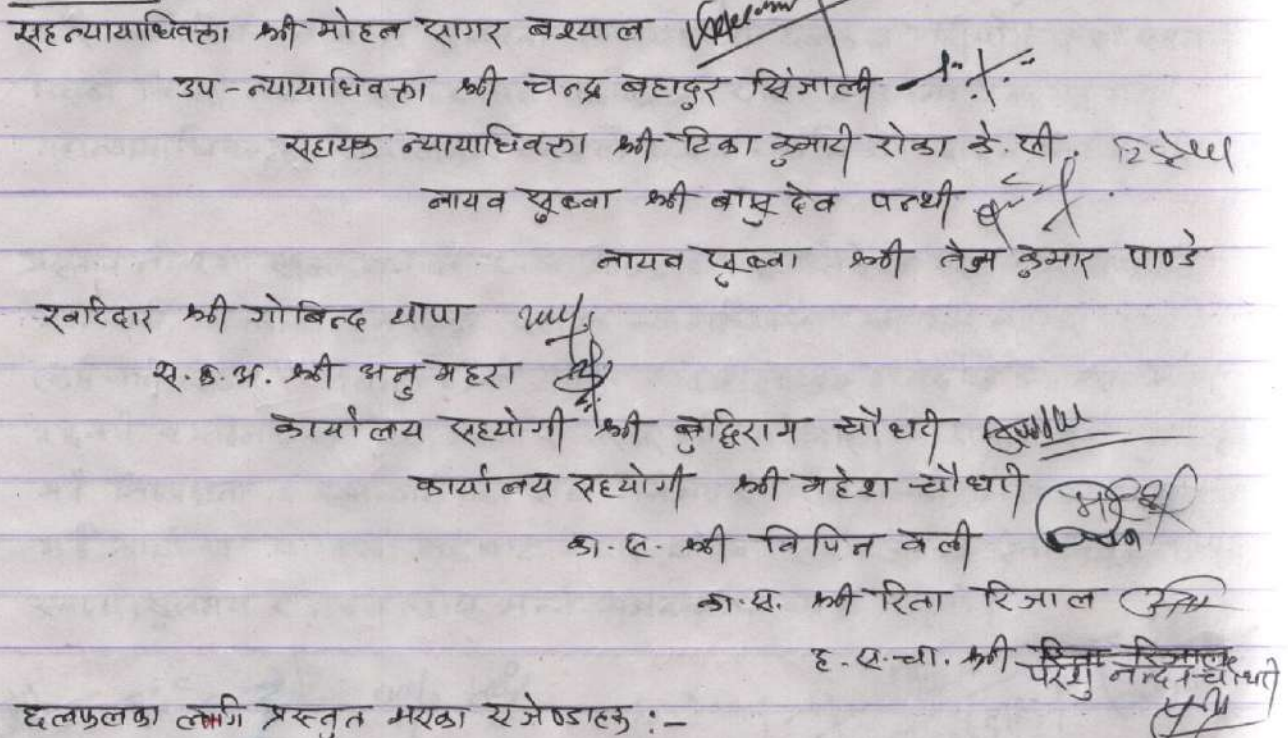 सहन्यायाधिवक्ता श्री मोहन सागर बश्याल
उप-न्यायाधिवक्ता श्री चन्द्र बहादुर सिंजाली
सहायक न्यायाधिवक्ता श्री टिका कुमारी रोका के.सी.
नायव सुब्बा श्री बासु देव पन्थी
नायव सुब्बा श्री तेज कुमार पाण्डे
खरिदार श्री गोबिन्द थापा
स.क.अ. श्री अनु महरा
कार्यालय सहयोगी श्री बुद्धिराम चौधरी
कार्यालय सहयोगी श्री महेश चौधरी
का.स. श्री विपिन वली
का.स. श्री रिता रिजाल
ह.स.चा. श्री रिता रिजाल
परशु नन्द चौधरी
छलफलका लागि प्रस्तुत भएका एजेण्डाहरू :-